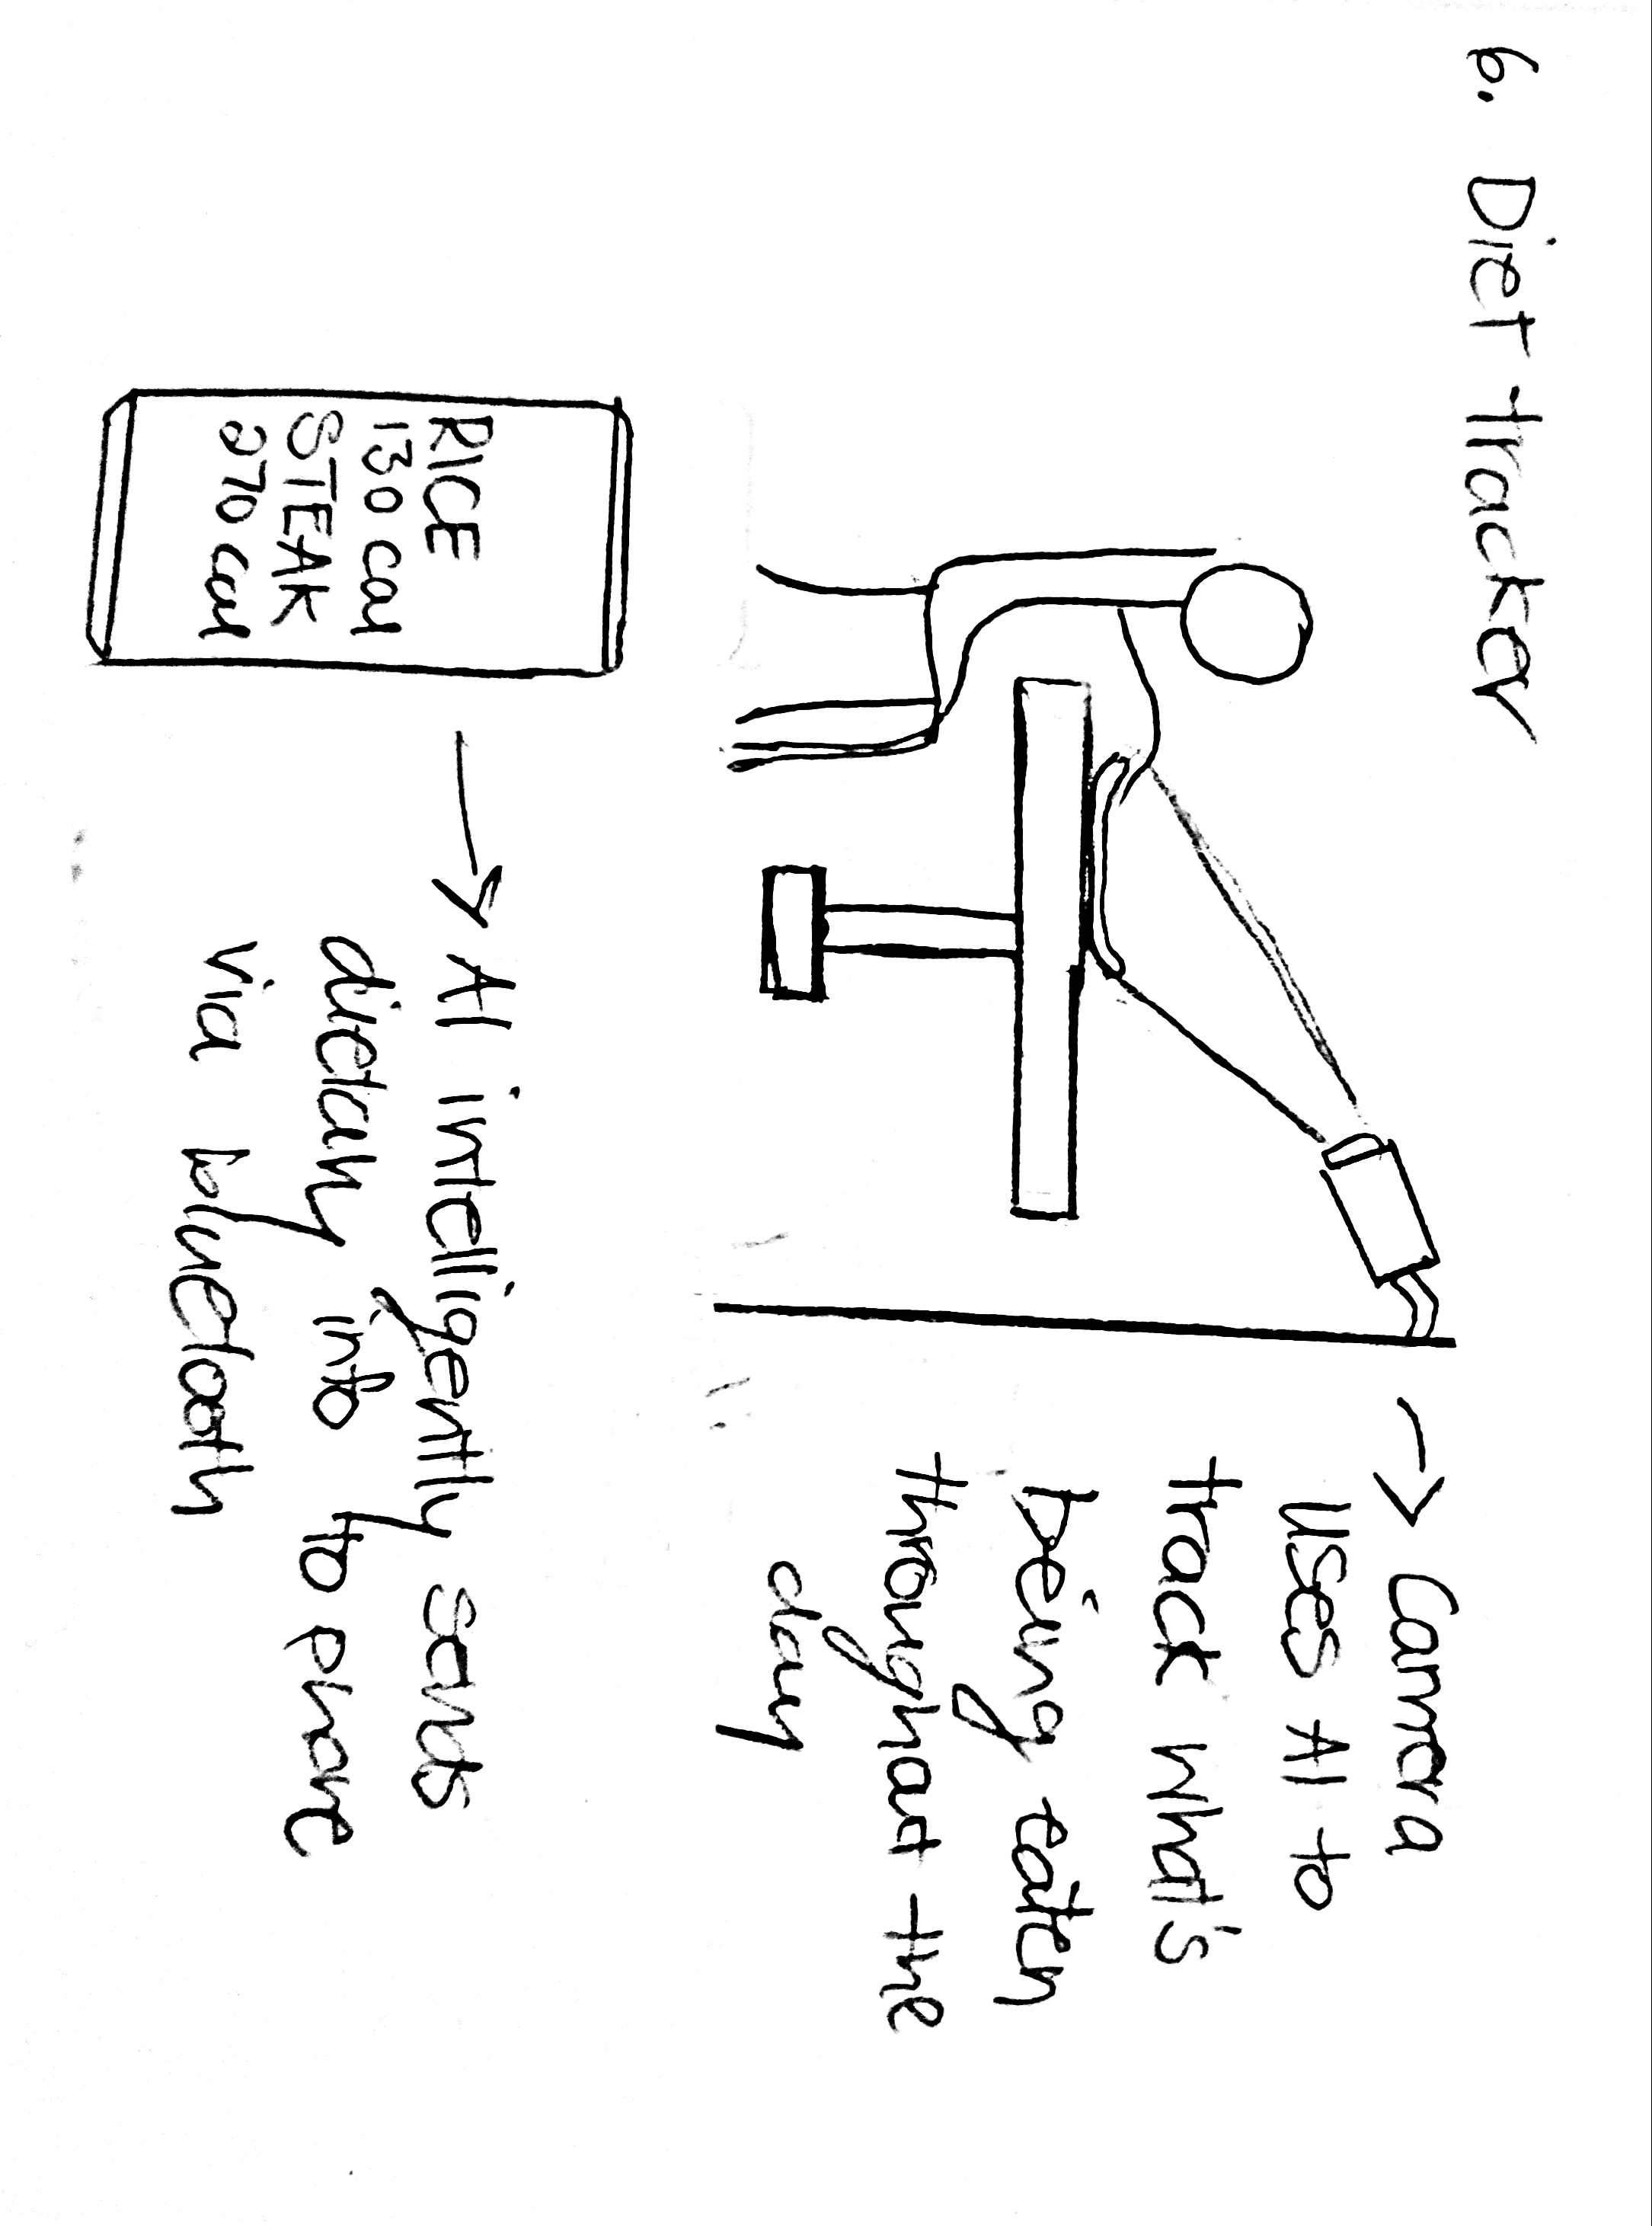 6. Diet tracker
-> Camera
uses AI to
track what's
being eaten
throughout the
day
RICE
130 cal
STEAK
270 cal
-> AI intelligently sends
dietary info to phone
via bluetooth